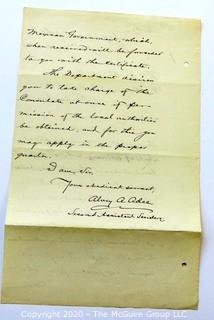 Mexican Government, which,
when received will be forwarded
to you with the Certificate.
The Department desires
you to take charge of the
Consulate at once if per-
mission of the local authorities
be obtained, and for this you
may apply in the proper
quarter.
I am, Sir,
Your obedient servant,
Alvey A. Adee
Second Assistant Secretary
Copyright 2020 - The McGuire Group